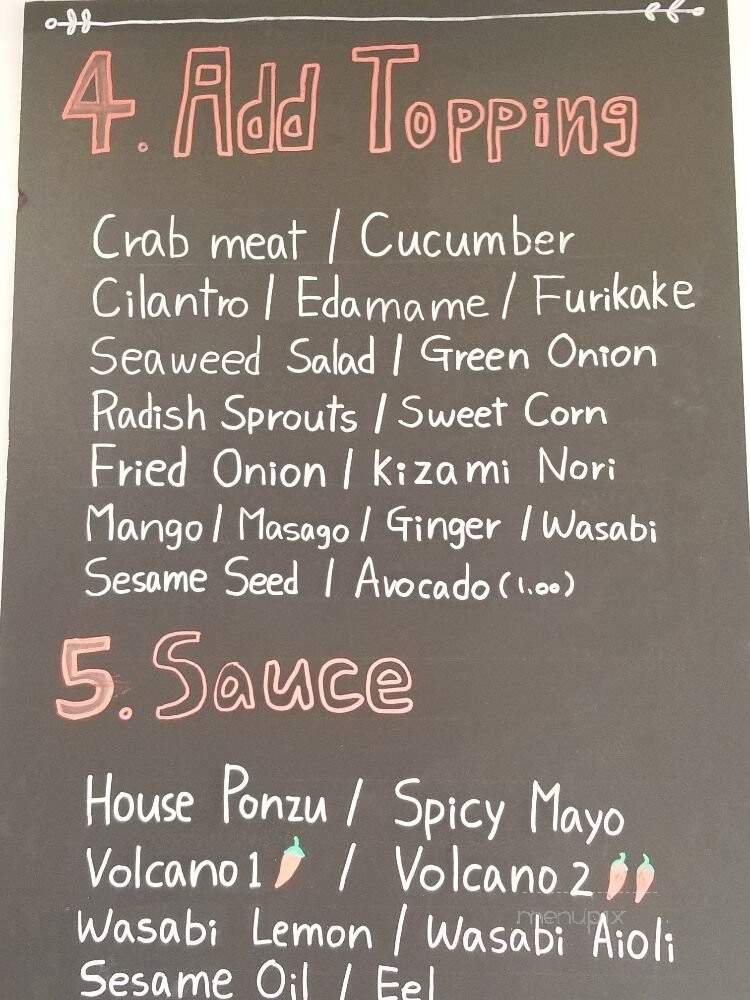 4. Add Topping
Crab meat / Cucumber
Cilantro / Edamame / Furikake
Seaweed Salad / Green Onion
Radish Sprouts / Sweet Corn
Fried Onion / Kizami Nori
Mango / Masago / Ginger / Wasabi
Sesame Seed / Avocado (1.00)
5. Sauce
House Ponzu / Spicy Mayo
Volcano 1 / Volcano 2
menupix
Wasabi Lemon / Wasabi Aioli
Sesame Oil / Eel